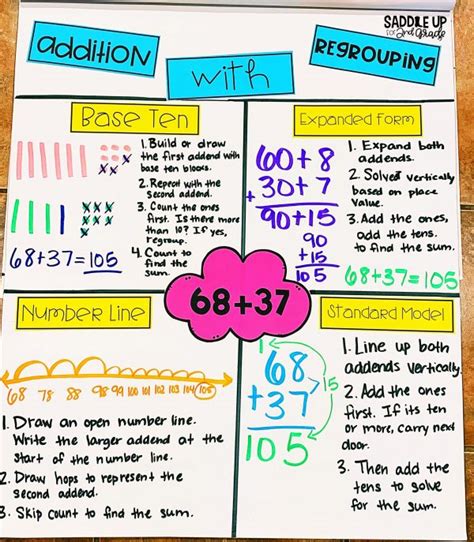 SADDLE UP
for 2nd Grade
addition
with
REGROUPING
Base Ten
1. Build or draw
the first addend with
base ten blocks.
2. Repeat with the
second addend.
3. Count the ones
first. Is there more
than 10? If yes,
regroup.
4. Count to
find the
sum.
68+37=105
Expanded Form
60+8
+ 30+7
90+15
90
+15
105
1. Expand both
addends.
2. Solve vertically
based on place
value.
3. Add the ones,
add the tens.
to find the sum.
68+37=105
68+37
Number Line
68 78 88 98 99 100 101 102 103 104 105
1. Draw an open number line.
Write the larger addend at the
start of the number line.
2. Draw hops to represent the
second addend.
3. Skip count to find the sum.
Standard Model
1
68
+37
15
105
1. Line up both
addends vertically.
2. Add the ones
first. If its ten
or more, carry next
door.
3. Then add the
tens to solve
for the sum.